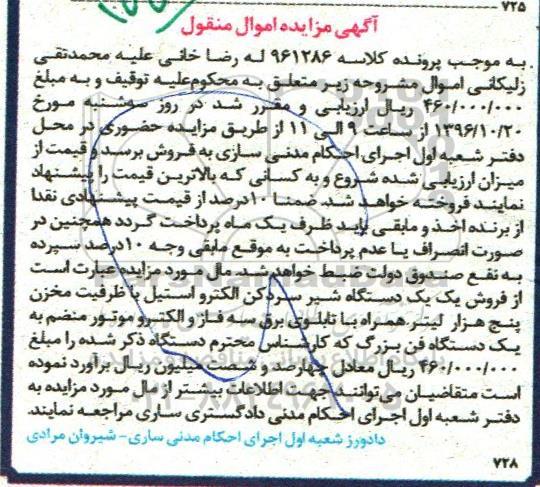 ۷۲۵
آگهی مزایده اموال منقول
به موجب پرونده کلاسه ۹۶۱۲۸۶ له رضا خانی علیه محمدتقی
زلیکانی اموال مشروحه زیر متعلق به محکوم‌علیه توقیف و به مبلغ
۴۶۰/۰۰۰/۰۰۰ ریال ارزیابی و مقرر شد در روز سه‌شنبه مورخ
۱۳۹۶/۱۰/۲۰ از ساعت ۹ الی ۱۱ از طریق مزایده حضوری در محل
دفتر شعبه اول اجرای احکام مدنی ساری به فروش برسد و قیمت از
میزان ارزیابی شده شروع و به کسانی که بالاترین قیمت را پیشنهاد
نمایند فروخته خواهد شد. ضمنا ۱۰درصد از قیمت پیشنهادی نقدا
از برنده اخذ و مابقی باید ظرف یک ماه پرداخت گردد همچنین در
صورت انصراف یا عدم پرداخت به موقع مابقی وجه ۱۰درصد سپرده
به نفع صندوق دولت ضبط خواهد شد. مال مورد مزایده عبارت است
از فروش یک یک دستگاه شیر سردکن الکترو استیل با ظرفیت مخزن
پنج هزار لیتر همراه با تابلوی برق سه فاز و الکترو موتور منضم به
یک دستگاه فن بزرگ که کارشناس محترم دستگاه ذکر شده را مبلغ
۴۶۰/۰۰۰/۰۰۰ ریال معادل چهارصد و شصت میلیون ریال برآورد نموده
است متقاضیان می‌توانند جهت اطلاعات بیشتر از مال مورد مزایده به
دفتر شعبه اول اجرای احکام مدنی دادگستری ساری مراجعه نمایند.
دادورز شعبه اول اجرای احکام مدنی ساری- شیروان مرادی
۷۲۸